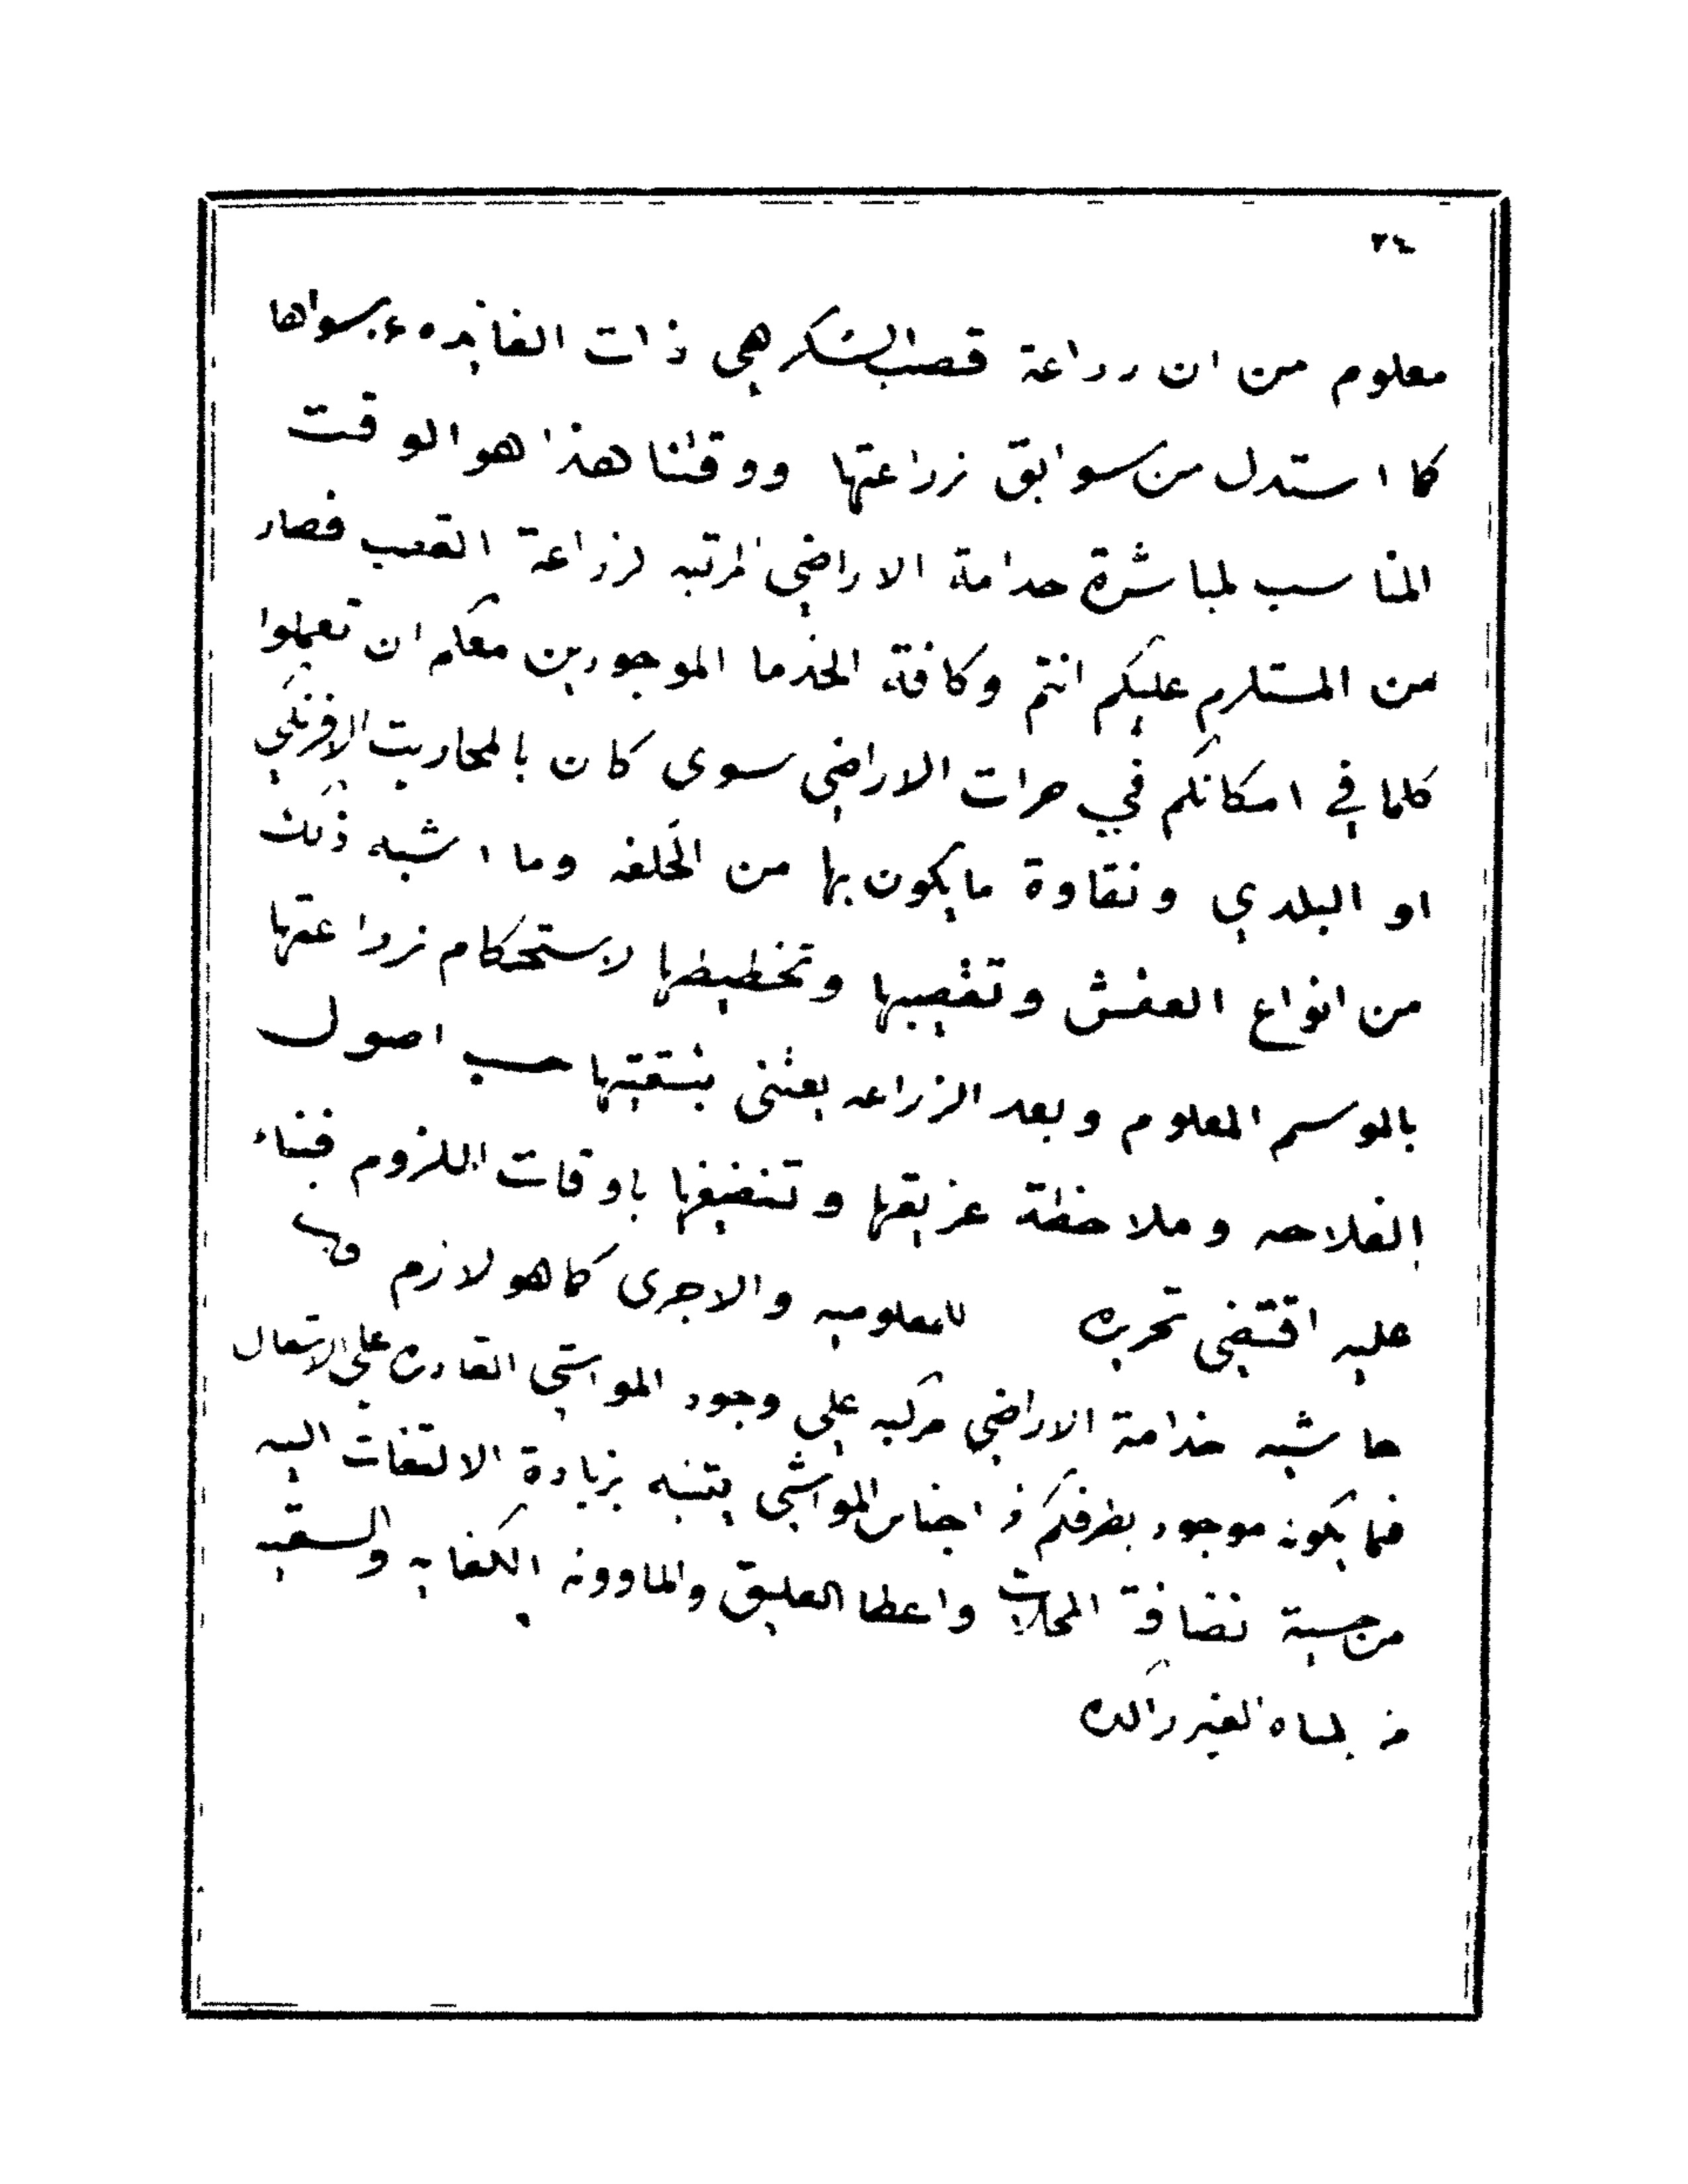 ٢٤
معلوم من ان زراعة قصب السكر هي ذات الفايده عن سواها
كما استدل من سوابق زراعتها ووقتنا هذا هو الوقت
المناسب لمباشرة خدامة الاراضي المرتبه لزراعة القصب فصار
من المستلزم عليكم انتم وكافة الخدما الموجودين معكم ان تعملوا
كلما في امكانكم في حرات الاراضي سوى كان بالمحاريت الافرنكي
او البلدي ونقاوة ما يكون بها من الحلفه وما اشبه ذلك
من انواع العفش وتقصيبها وتخطيطها لاستحكام زراعتها
بالموسم المعلوم وبعد الزراعه يعتنى بسقيتها حسب اصول
الفلاحه وملاحظة عزيقها وتنضيفها باوقات اللزوم فبناء
عليه اقتضى تحريره للمعلوميه والاجرى كما هو لازم
حاشيه خدامة الاراضي مركبه على وجود المواشي القادره على الاشعال
فما يكون موجود بطرفكم من اجناس المواشي يتنبه بزيادة الالتفات اليه
من حيسة نضافة المحلات واعطا العليق والماوونه الكفايه والسقيه
من المياه الغير راكده